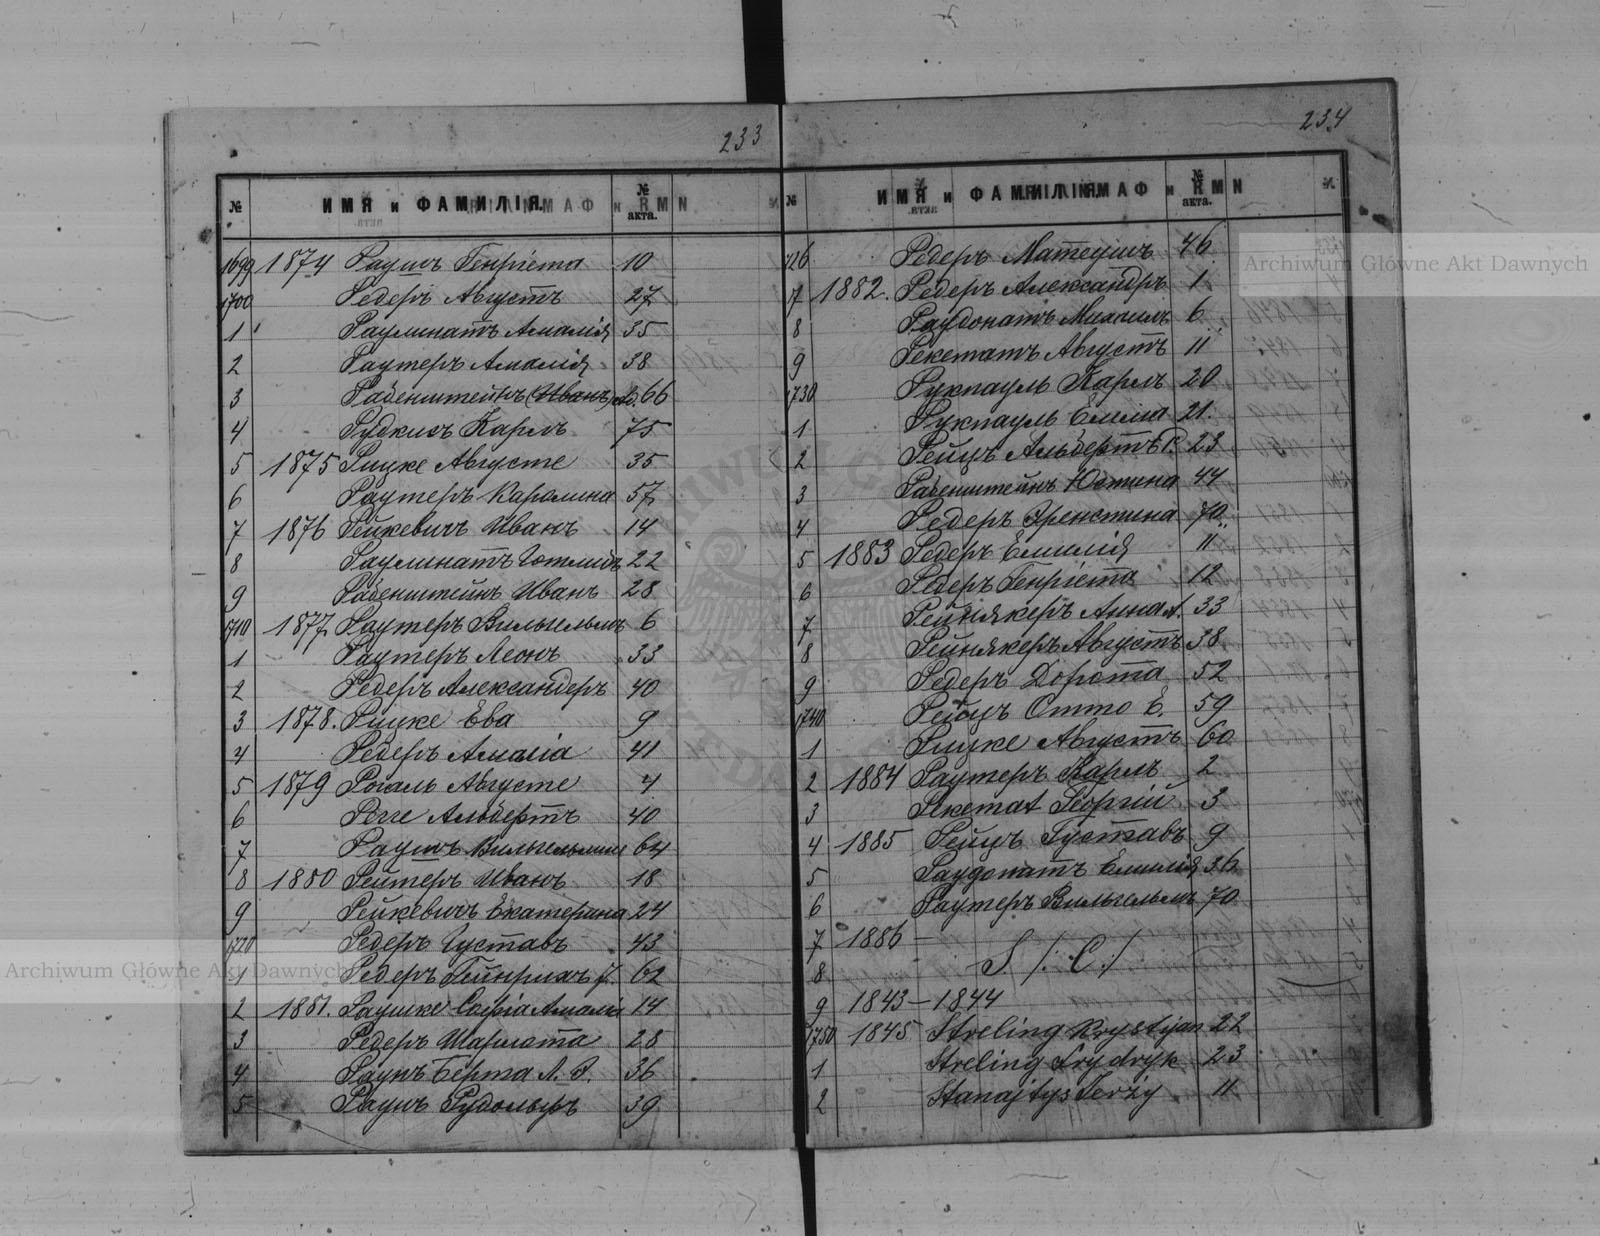 233
№ ИМЯ и ФАМИЛІЯ. № акта.
1699 1874 Раушъ Генріета 10
1700 Редеръ Августъ 27
1 Раулинатъ Амалія 35
2 Раутеръ Амалія 38
3 Рабенштейнъ (Иванъ) 66
4 Рудкисъ Карлъ 75
5 1875 Рицке Августе 35
6 Раутеръ Каролина 57
7 1876 Рейкевичъ Иванъ 14
8 Раулинатъ Готлибъ 22
9 Рабенштейнъ Иванъ 28
1710 1877 Раутеръ Вильгельмъ 6
1 Раутеръ Леонъ 33
2 Редеръ Александеръ 40
3 1878. Рицке Ева 9
4 Редеръ Амалія 41
5 1879 Рогаль Августе 4
6 Реге Альбертъ 40
7 Раушъ Вильгельмина 64
8 1880 Рейтеръ Иванъ 18
9 Рейкевичъ Екатерина 24
1720 Редеръ Густавъ 43
1 Редеръ Гейнрихъ 62
2 1881. Раушке Софія Амалія 14
3 Редеръ Шарлота 28
4 Раунъ Берта Л. 36
5 Раушъ Рудольфъ 39
234
№ ИМЯ и ФАМИЛІЯ. № акта.
726 Редеръ Матеушъ 46
7 1882. Редеръ Александръ 1
8 Раудонатъ Михаилъ 6
9 Рекетатъ Августъ 11
1730 Рукпауль Карлъ 20
1 Рукпауль Емма 21.
2 Рейцъ Альбертъ Р. 23
3 Рабенштейнъ Юстина 44
4 Редеръ Эрнестина 70
5 1883 Редеръ Емилія 11
6 Редеръ Генріета 12
7 Рейнякеръ Анна А. 33
8 Рейнякеръ Августъ 38
9 Редеръ Дорота 52
1740 Рейцъ Отто Е. 59
1 Рицке Августъ 60
2 1884 Раутеръ Карлъ 2
3 Рекетат Георгій 3
4 1885 Рейцъ Густавъ 9
5 Раудонатъ Емилія 36
6 Раутеръ Вильгельмъ 70
7 1886 —
8 S /. С./
9 1843 — 1844
1750 1845 Streling Krystjan 22
1 Streling Frydryk 23
2 Stanajtys Jerży 11
Archiwum Główne Akt Dawnych
Archiwum Główne Akt Dawnych